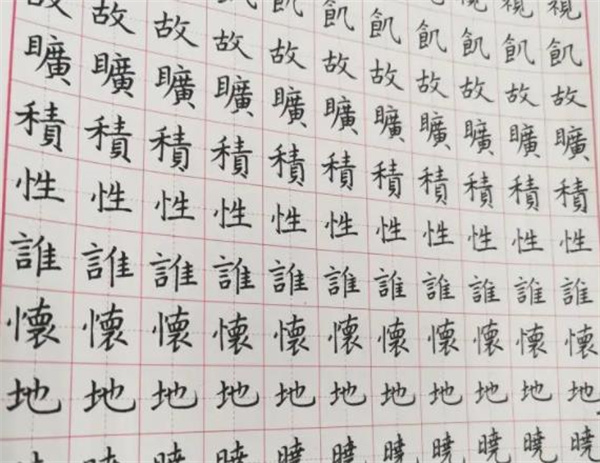 視視視
飢飢飢飢飢飢飢
故故故故故故故故故故故
曠曠曠曠曠曠曠曠曠曠曠
積積積積積積積積積積積
性性性性性性性性性性性
誰誰誰誰誰誰誰誰誰誰誰
懷懷懷懷懷懷懷懷懷懷懷
地地地地地地地地地地地
曉曉曉曉曉曉曉曉曉曉曉